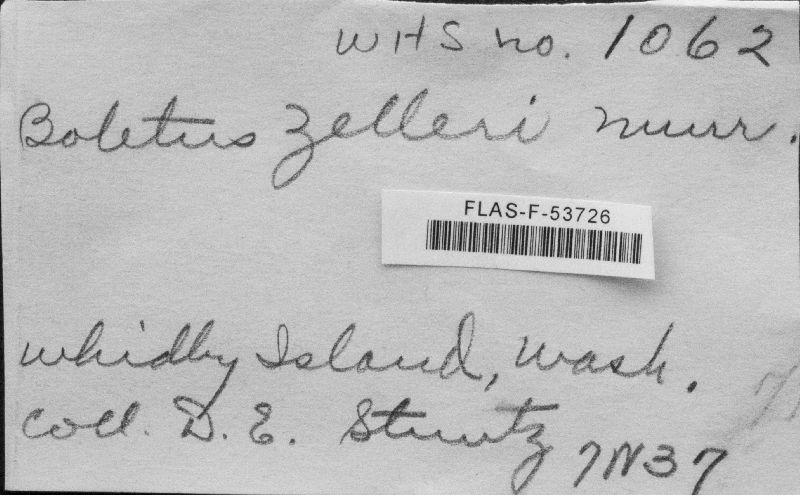 WHS no. 1062
Boletus Zelleri Murr.
FLAS-F-53726
Whidby Island, Wash.
Coll. D. E. Stuntz 7N37